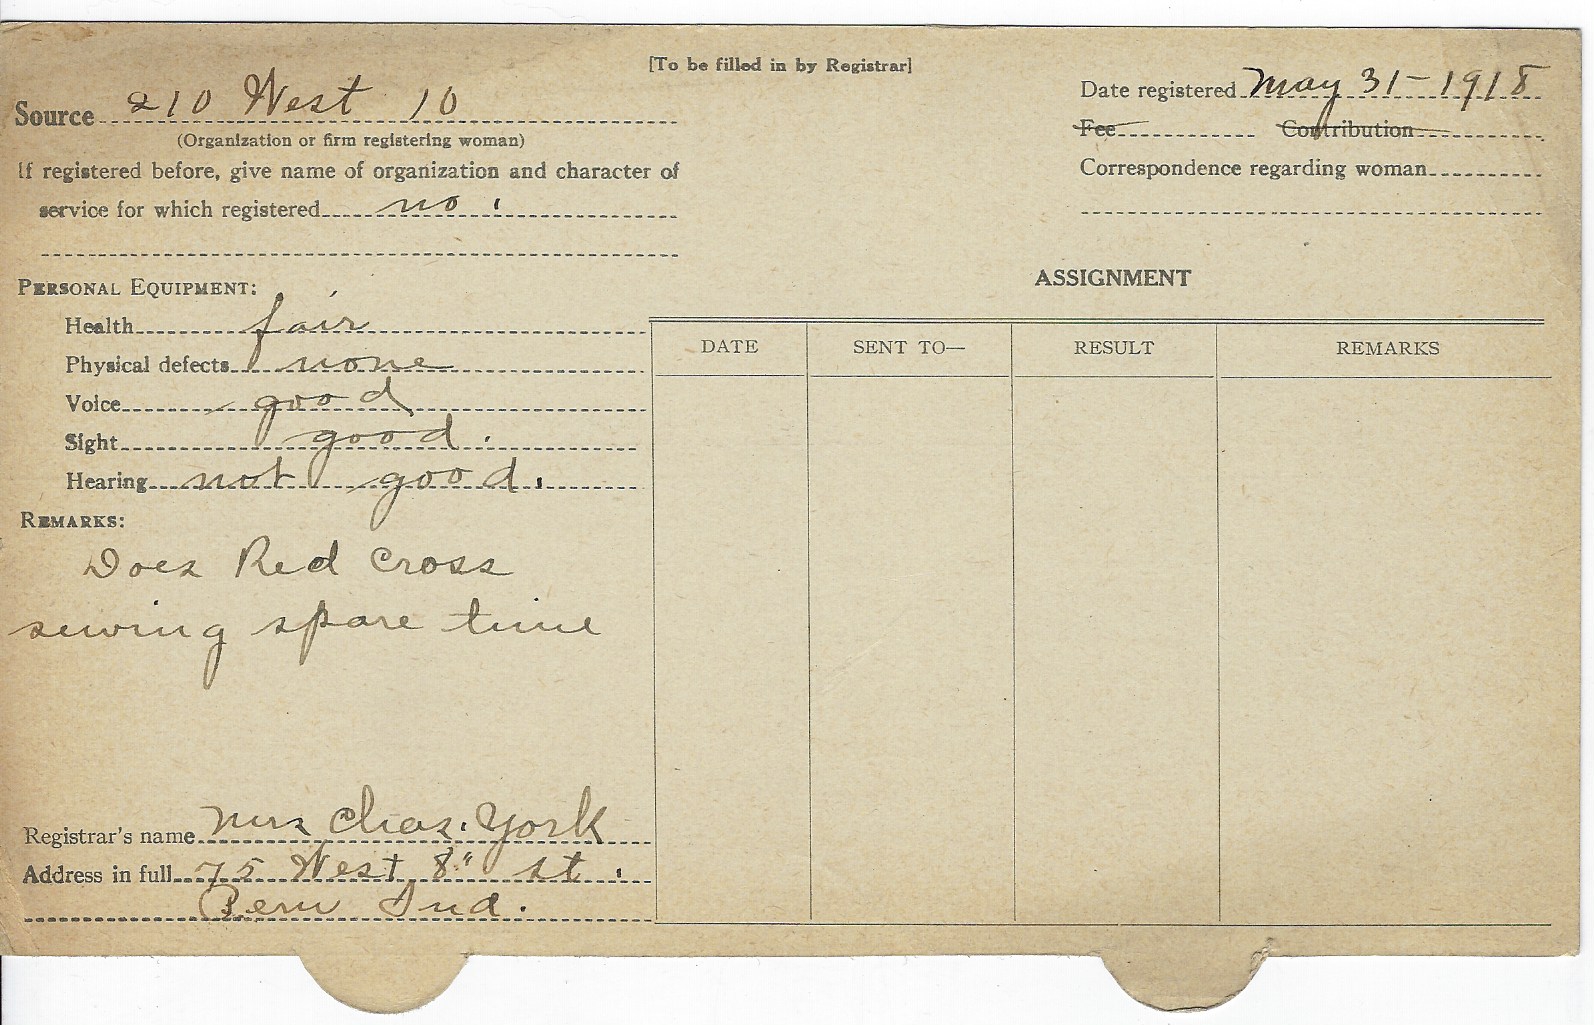 [To be filled in by Registrar]
Source 210 West 10
(Organization or firm registering woman)
If registered before, give name of organization and character of
service for which registered no.
Date registered May 31-1918
Fee Contribution
Correspondence regarding woman
PERSONAL EQUIPMENT:
Health fair
Physical defects none
Voice good
Sight good.
Hearing not good.
REMARKS:
Does Red Cross
sewing spare time
Registrar's name Mrs Chas. York
Address in full 75 West 8" st.
Peru Ind.
ASSIGNMENT
DATE SENT TO— RESULT REMARKS